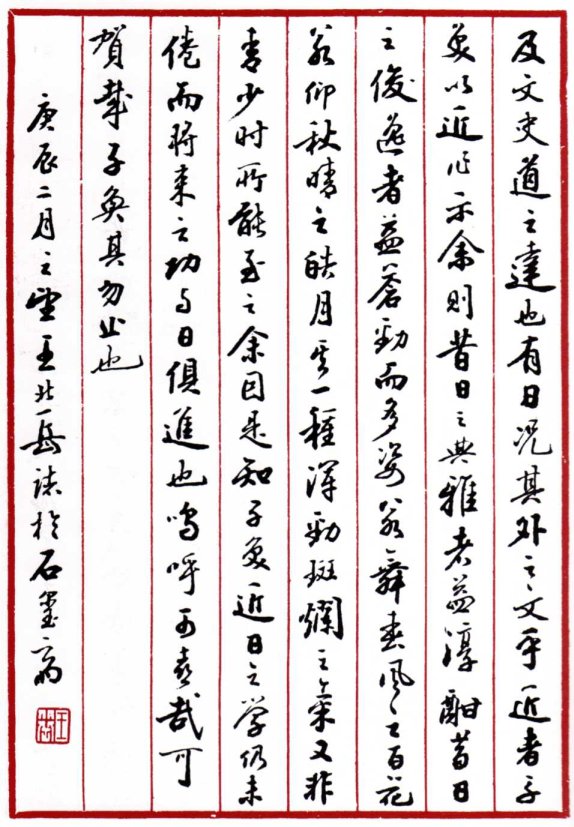 及文史道之達也有日況其外之文乎近者子
奐以近作示余則昔日之典雅者益淳酣昔日
之俊逸者益蒼勁而多姿若舞春風之百花
若仰秋晴之皓月其一種渾勁斑斕之氣又非
青少时所能至之余因是知子奐近日之学仍未
倦而將来之功与日俱進也嗚呼可喜哉可
賀哉子奐其勿止也
庚辰二月之望王北岳誌於石璽齋